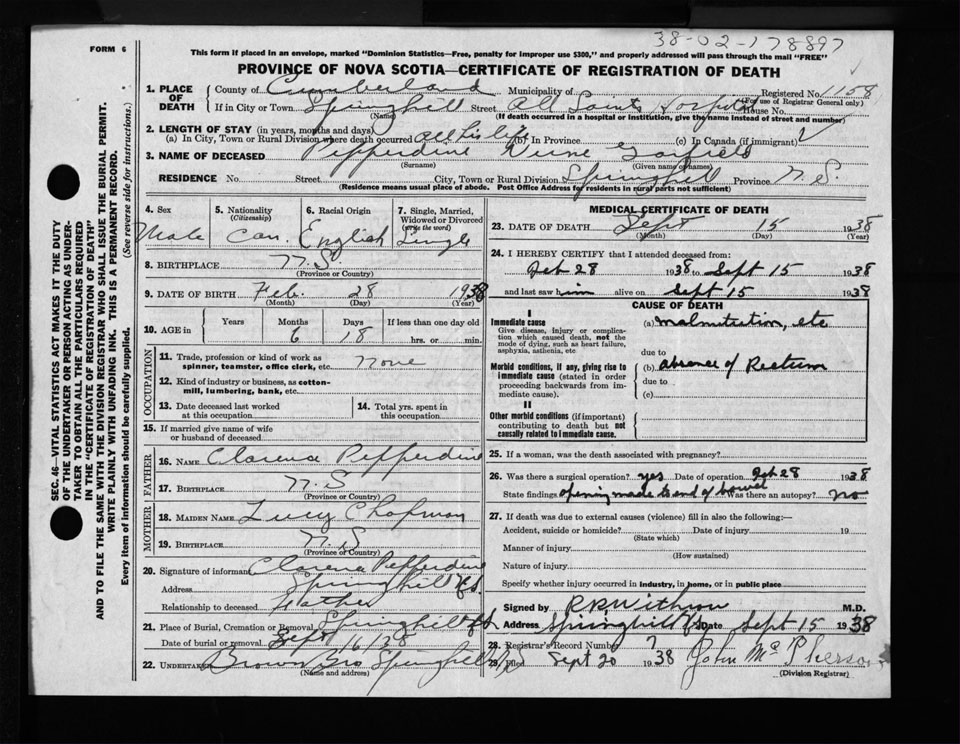 38-02-178897
FORM 6
This form if placed in an envelope, marked "Dominion Statistics—Free, penalty for improper use $300," and properly addressed will pass through the mail "FREE"
PROVINCE OF NOVA SCOTIA—CERTIFICATE OF REGISTRATION OF DEATH
SEC. 46—VITAL STATISTICS ACT MAKES IT THE DUTY
OF THE UNDERTAKER OR PERSON ACTING AS UNDER-
TAKER TO OBTAIN ALL THE PARTICULARS REQUIRED
IN THE "CERTIFICATE OF REGISTRATION OF DEATH"
AND TO FILE THE SAME WITH THE DIVISION REGISTRAR WHO SHALL ISSUE THE BURIAL PERMIT.
WRITE PLAINLY WITH UNFADING INK. THIS IS A PERMANENT RECORD.
Every item of information should be carefully supplied. (See reverse side for instructions.)
1. PLACE OF DEATH County of Cumberland Municipality of Registered No. 1158
(For use of Registrar General only)
If in City or Town Springhill Street All Saints Hospital House No.
(Name) (If death occurred in a hospital or institution, give the name instead of street and number)
2. LENGTH OF STAY (in years, months and days)
(a) In City, Town or Rural Division where death occurred all his life (b) In Province (c) In Canada (if immigrant)
3. NAME OF DECEASED Pepperdine Garfield
(Surname) (Given name or names)
RESIDENCE No. Street City, Town or Rural Division Springhill Province N.S.
(Residence means usual place of abode. Post Office Address for residents in rural parts not sufficient)
4. Sex 5. Nationality (Citizenship) 6. Racial Origin 7. Single, Married, Widowed or Divorced (write the word)
Male Can. English Single
8. BIRTHPLACE N.S
(Province or Country)
9. DATE OF BIRTH Feb. 28 1938
(Month) (Day) (Year)
10. AGE in Years Months Days If less than one day old
6 18 hrs. or min.
OCCUPATION
11. Trade, profession or kind of work as spinner, teamster, office clerk, etc. None
12. Kind of industry or business, as cotton-mill, lumbering, bank, etc.
13. Date deceased last worked at this occupation
14. Total yrs. spent in this occupation
15. If married give name of wife or husband of deceased
FATHER
16. NAME Clarence Pepperdine
17. BIRTHPLACE N.S
(Province or Country)
MOTHER
18. MAIDEN NAME Lucy Chapman
19. BIRTHPLACE N.S
(Province or Country)
20. Signature of informant Clarence Pepperdine
Address Springhill N.S.
Relationship to deceased Father
21. Place of Burial, Cremation or Removal Springhill N.S
Date of burial or removal Sept 16/38
22. UNDERTAKER Brown Bro Springhill N.S
(Name and address)
MEDICAL CERTIFICATE OF DEATH
23. DATE OF DEATH Sept 15 1938
(Month) (Day) (Year)
24. I HEREBY CERTIFY that I attended deceased from:
Feb 28 1938 to Sept 15 1938
and last saw him alive on Sept 15 1938
CAUSE OF DEATH
I
Immediate cause (a) Malnutrition, etc
Give disease, injury or complication which caused death, not the mode of dying, such as heart failure, asphyxia, asthenia, etc
due to
Morbid conditions, if any, giving rise to immediate cause (stated in order proceeding backwards from immediate cause). (b) absence of Rectum
due to
(c)
II
Other morbid conditions (if important) contributing to death but not causally related to immediate cause.
25. If a woman, was the death associated with pregnancy?
26. Was there a surgical operation? yes Date of operation Feb 28 1938
State findings opening made to end of bowel Was there an autopsy? No
27. If death was due to external causes (violence) fill in also the following:—
Accident, suicide or homicide? Date of injury 19
(State which)
Manner of injury
(How sustained)
Nature of injury
Specify whether injury occurred in industry, in home, or in public place
Signed by M.D.
Address Springhill N.S. Date Sept 15 1938
28. Registrar's Record Number 7
29. Filed Sept 20 1938 John McPherson
(Division Registrar)